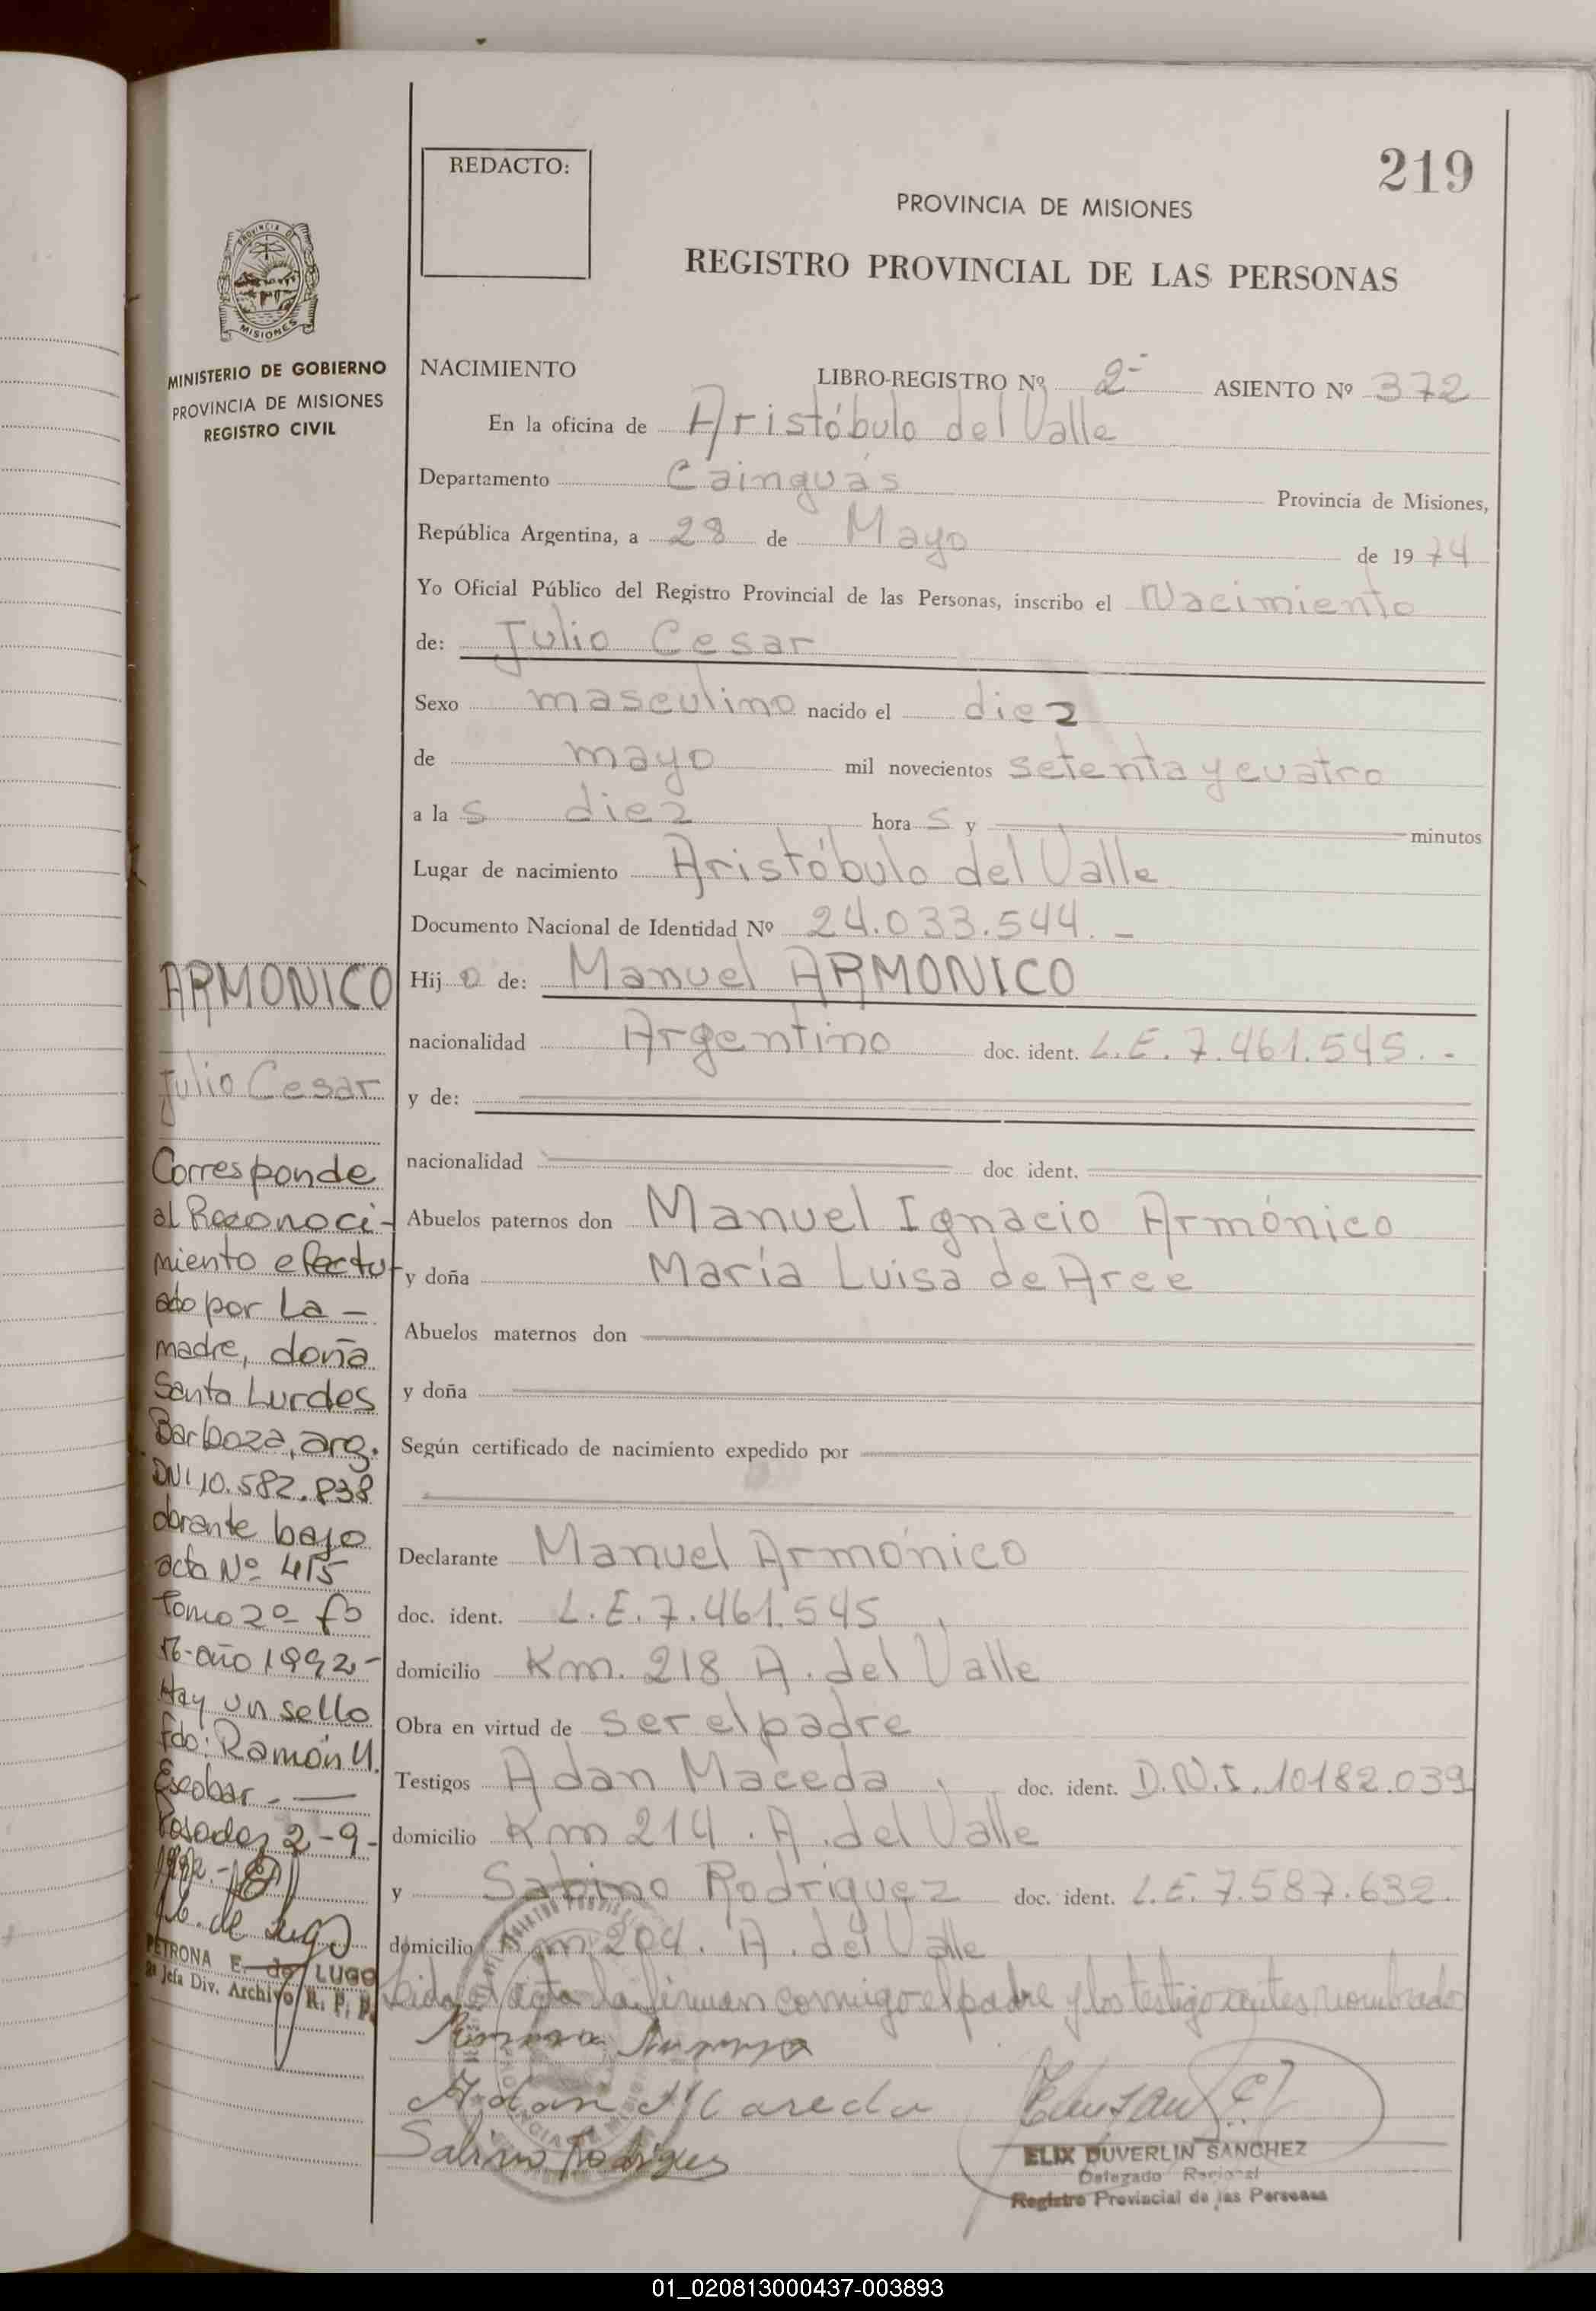 219
REDACTO:
PROVINCIA DE MISIONES
REGISTRO PROVINCIAL DE LAS PERSONAS
PROVINCIA DE
MISIONES
MINISTERIO DE GOBIERNO
PROVINCIA DE MISIONES
REGISTRO CIVIL
NACIMIENTO LIBRO-REGISTRO Nº 2- ASIENTO Nº 372
En la oficina de Aristóbulo del Valle
Departamento Cainguás Provincia de Misiones,
República Argentina, a 28 de Mayo de 1974
Yo Oficial Público del Registro Provincial de las Personas, inscribo el Nacimiento
de: Julio Cesar
Sexo masculino nacido el diez
de mayo mil novecientos setenta y cuatro
a la s diez hora s y minutos
Lugar de nacimiento Aristóbulo del Valle
Documento Nacional de Identidad Nº 24.033.544.-
Hijo de: Manuel ARMONICO
nacionalidad Argentino doc. ident. L.E. 7.461.545.-
y de:
nacionalidad doc. ident.
Abuelos paternos don Manuel Ignacio Armónico
y doña María Luisa de Arce
Abuelos maternos don
y doña
Según certificado de nacimiento expedido por
Declarante Manuel Armónico
doc. ident. L.E. 7.461.545
domicilio Km. 218 A. del Valle
Obra en virtud de ser el padre
Testigos Adan Maceda doc. ident. D.N.I. 10182.039
domicilio Km 214. A. del Valle
y Sabino Rodriguez doc. ident. L.E. 7.587.632.
domicilio Km 204. A. del Valle
Leida el acta la firman conmigo el padre y los testigo antes nombrado
Adan Maceda
Sabino Rodriguez
ELIX DUVERLIN SANCHEZ
Delegado Regional
Registro Provincial de las Personas
ARMONICO
Julio Cesar
Corresponde
al Reconoci-
miento efectu-
ado por La -
madre, doña
Santa Lurdes
Barboza, arg.
DNI 10.582.838
obrante bajo
acta Nº 415
Tomo 2º fº
16-año 1992-
Hay un sello
Fdo: Ramón U.
Escobar.-
Posadas 2-9-
1992.-
PETRONA E. de LUGO
Jefa Div. Archivo R. P. P.
01_020813000437-003893